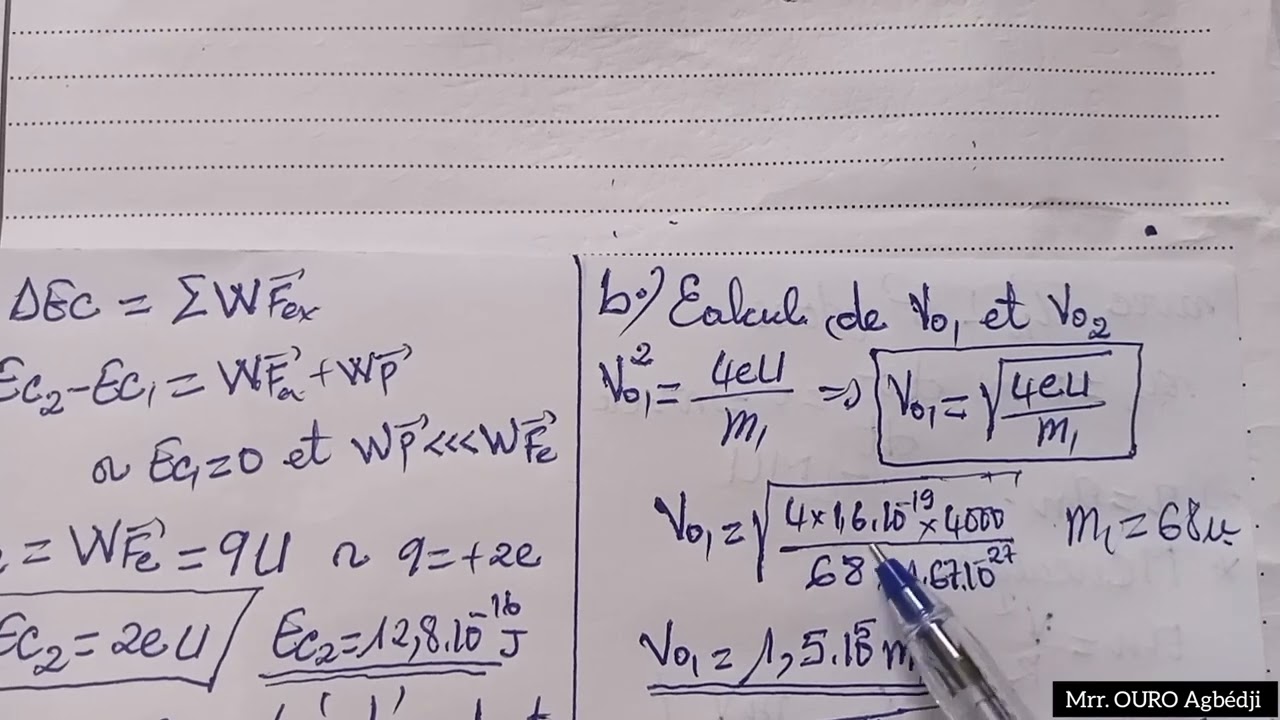 ΔEc = ΣWF⃗ex
Ec₂-Ec₁ = WF⃗a + WP⃗
or Ec₁=0 et WP⃗<<<WF⃗e
= WF⃗e = qU or q=+2e
Ec₂ = 2eU Ec₂ = 12,8.10⁻¹⁶ J
b.) Calcul de V₀₁ et V₀₂
V₀₁² = 4eU/m₁ => V₀₁ = √(4eU/m₁)
V₀₁ = √(4×1,6.10⁻¹⁹×4000 / 68 1,67.10⁻²⁷) m₁ = 68u
V₀₁ = 1,5.10⁵ m
Mrr. OURO Agbédji